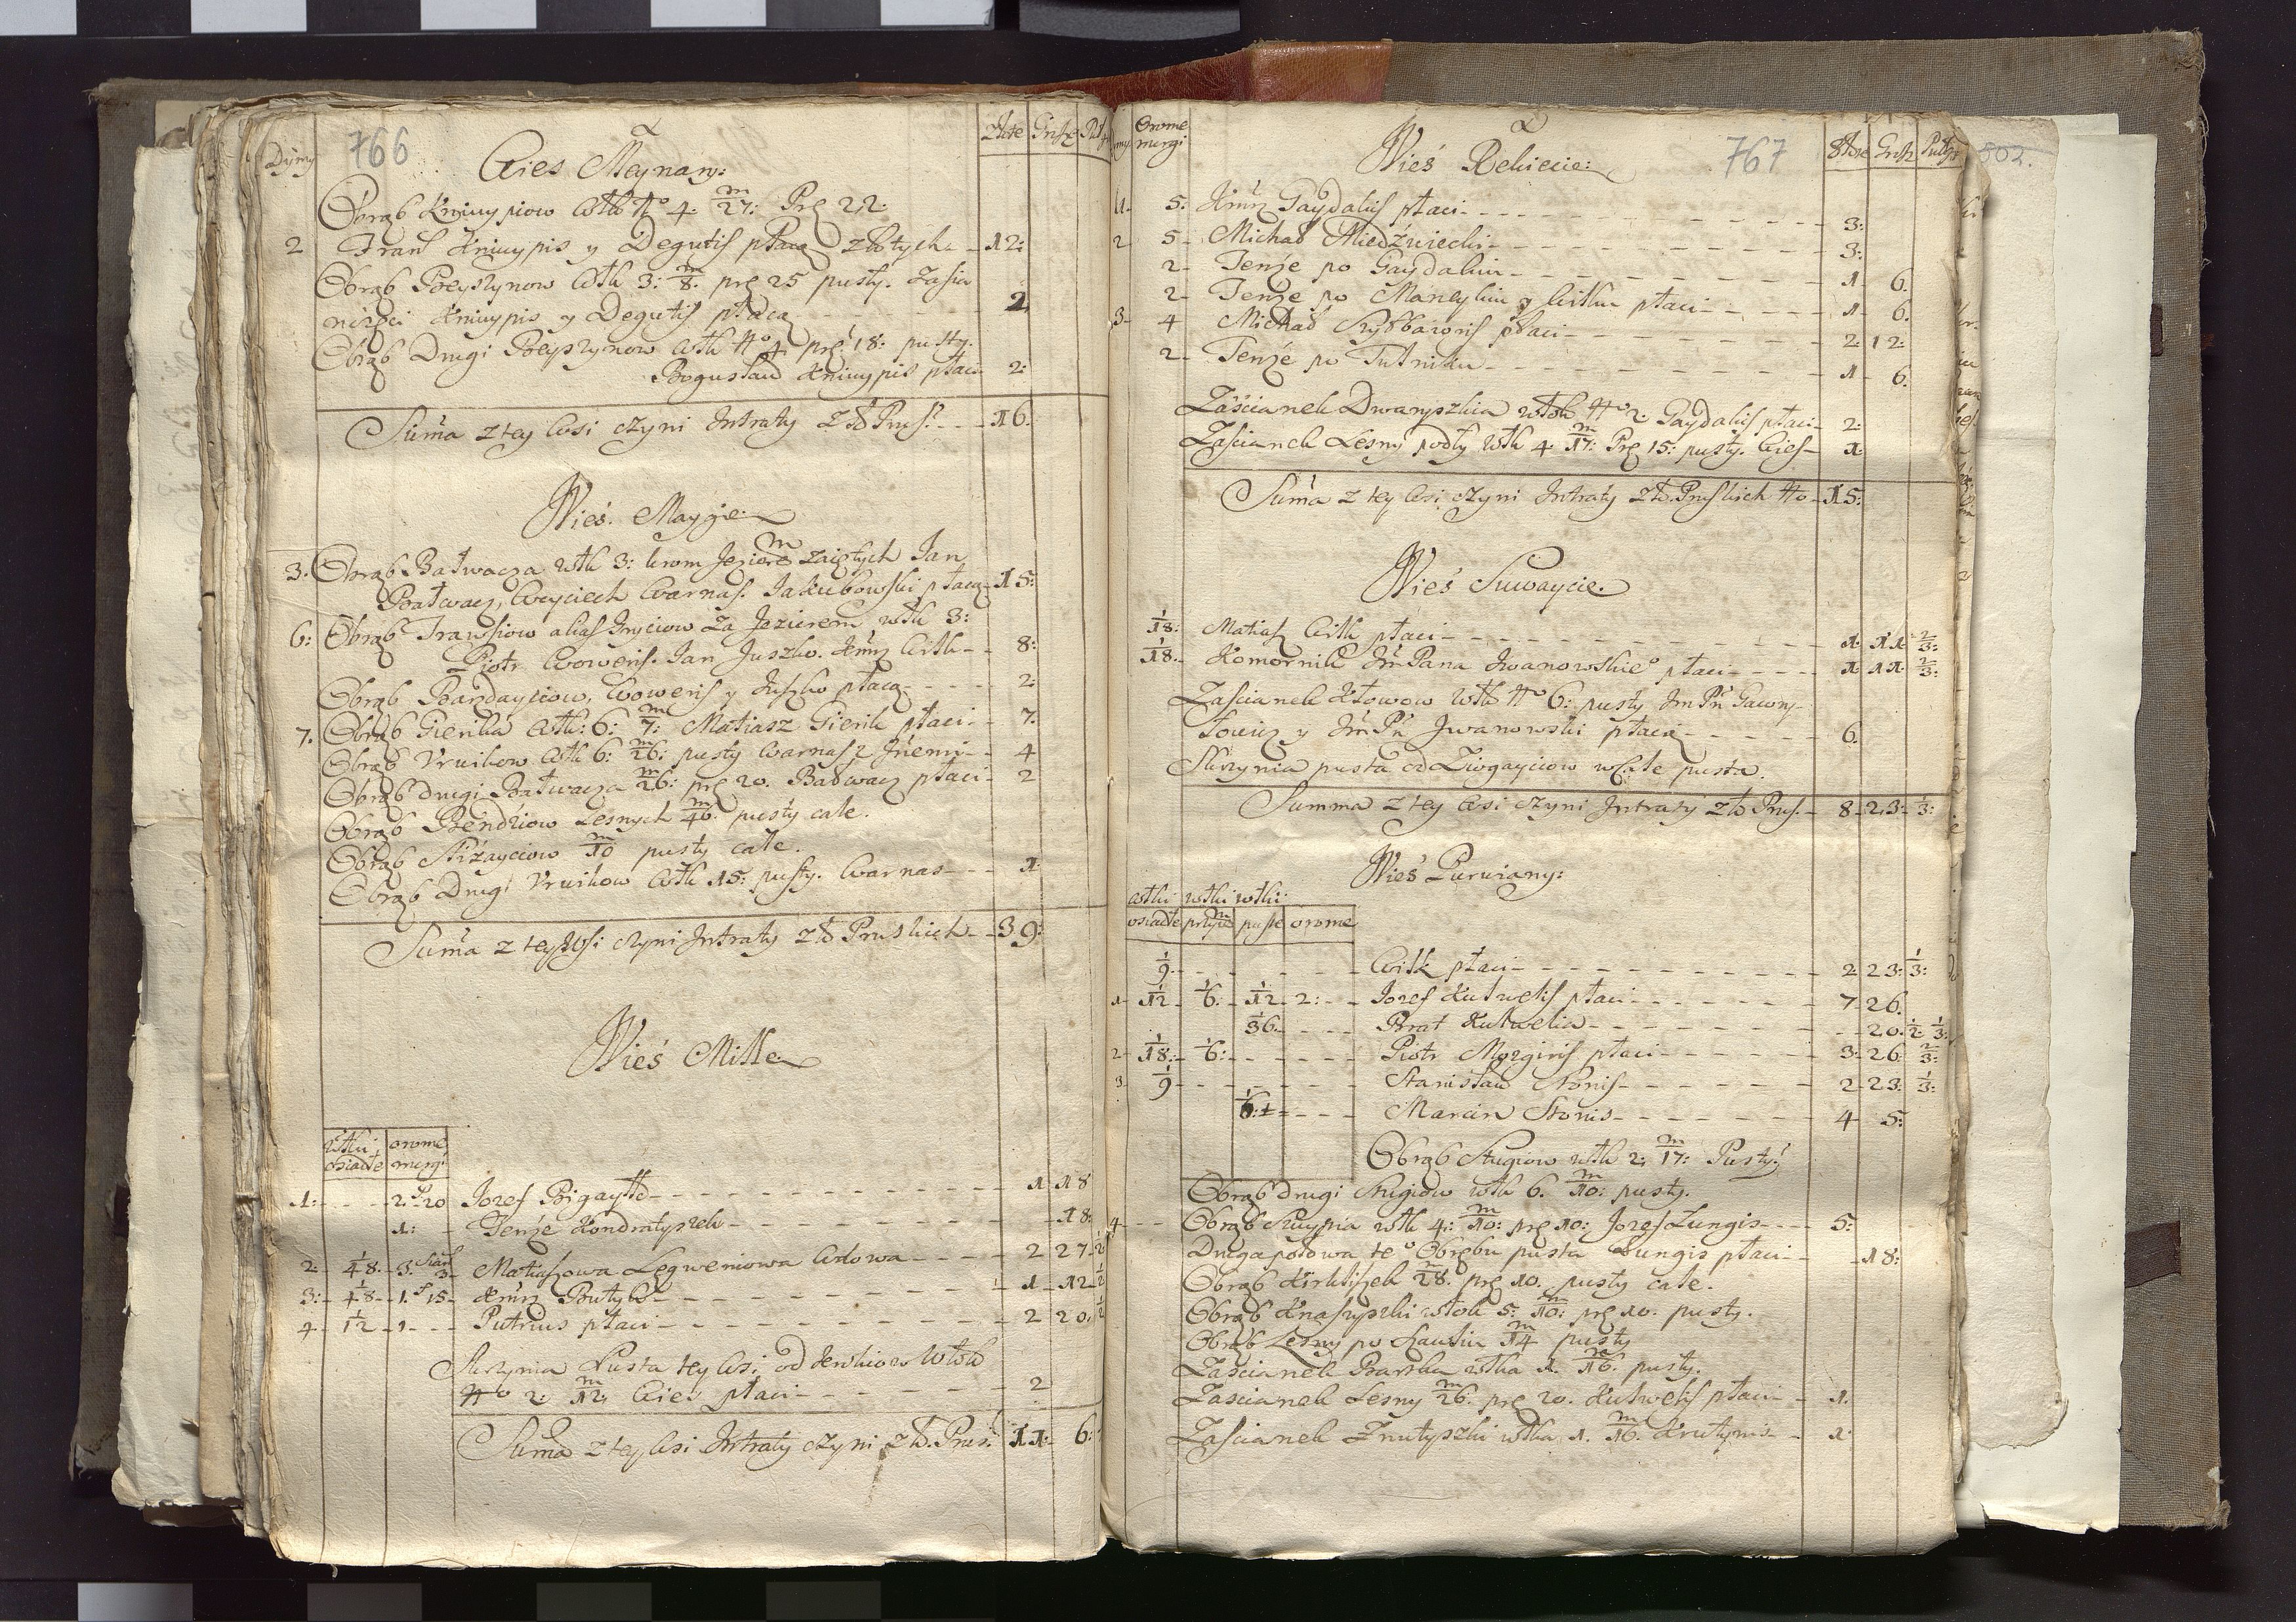 Dymy 766 Złote Grosze
Wies Meynary:
Obrąb Kniuypiow Włk No 4: m/27: Prę 22:
2 Frant Kniuypis y Degutis płacą złotych - 12:
Obrąb Poeyszynow Włk 3: m/8: prę 25 pusty. Zasia
Kniuypis y Degutis płacą - - - 2
Obrąb Drugi Poeyszynow Włk No 4 prę 18: pusty.
Bogusław Kniuypis płaci 2:
Suma z tey Wsi czyni Intraty Zł Prus: - - - 16.
Wieś Mayże
3. Obrąb Batwacza włk 3: krom Jeziora zaiętych Jan
Batwacz, Woyciech Warnas. Jakubowski płacą - 15:
6: Obrąb Trawsiow alias Gryciow za Jezierem włk 3:
Piotr Woweris. Jan Juszko. Kmrz Witk - - 8:
Obrąb Bardayciow, Woweris y Juszko płacą - - - 2:
7. Obrąb Gierika Włk: 6: m/7: Matiasz Gierik płaci - - 7.
Obrąb Vruikow Włk 6: m/26: pusty Warnas z Jnemi - - 4
Obrąb drugi Batwacza m/26: prę 20. Batwacz płaci - 2
Obrąb Bendziow Lesnych m/46. pusty cale.
Obrąb Niżayciow m/10 pusty cale.
Obrąb Drugi Vruikow Włk 15: pusty. Warnas - - - 1
Suma z tey Wsi czyni Intraty Zł Pruskich - - 39:
Wieś Mille
włki osiadłe orome morgi
1: - - - 2. 20 Jozef Bigayłło - - - 1 18
1: - Tenże Kondratyszek - - - 18:
2: 1/48 - 3. 3 Matiaszowa Legweniowa Wdowa - - - 2 27 1/2
3: - 1/48 - 1. 15 - Kmrz Butyb - - - 1 - 12 1/2
4 - 1/12 - 1 - - - Putrius płaci - - - 2 20. 1/2
Skrzynia Pusta tey Wsi od Jenkiow Włok
No 2: m/12: Wies płaci - - - 2
Suma z tey Wsi Intraty czyni Zł. Prus: 11: 6:
Orome morgi 767 Złote Grosz 502.
Wieś Rekiecie:
1. 5: Kmrz Gaydalis płaci - - - 3:
2 5 - Michał Niedźwiecki - - - 3:
2 - Tenże po Gaydaliu - - - 1 6.
2 - Tenże po Mancyliu y Witku płaci - - - 1 - 6.
3 - 4 Michał Szyłbaioris płaci - - - 2: 12:
2 - Tenże po Tutniku - - - 1 6.
Zaścianek Dwaryszkia włok No 2: Gaydalis płaci - 2:
Zascianek Lesny podły Włk 4: m/17: Prę 15: pusty. Wies - 1:
Suma z tey Wsi czyni Intraty Zł. Pruskich No - 15:
Wieś Suwaycie.
1/18: Matiasz Witk płaci - - - 1: 11: 2/3:
1/18. - Komornik Jm Pana Iwanowskiego płaci - - - 1 11: 2/3:
Zascianek Kłowow Włk No 6: pusty Jm Pn Gawry-
łowicz y Jm Pn Jwanowski płacą - - - 6.
Skrzynia pusta od Ziogayciow wcale pusta.
Summa z tey Wsi czyni Intraty Zł Prus. - 8 - 23: 1/3:
Wieś Purwiany:
włki włki włki
osiadłe przyię puste orome
1/9. - - - Witk płaci - - - 2 23: 1/3:
1 - 1/12 - 1/6: - 1/12 - 2: - - Jozef Kutwelis płaci - - - 7 - 26.
1/36. - - - Brat Kutwelia - - - 20: 1/2 1/3:
2 - 1/18: - 1/6: - - - Piotr Mozgiris płaci - - - 3: 26: 2/3:
3 1/9 - - - Stanisław Stonis - - - 2 - 23: 1/3:
1/6: 1 - - - Marcin Stonis - - - 4 5:
Obrąb Stugiow włk 2: m/17: Pusty
Obrąb drugi Stugiow włk 6. m/10: pusty.
4 - - - Obrąb Skuypia włk 4: m/10: prę 10: Jozef Lungis - - - 5:
Druga połowa tego Obrębu pusta Lungis płaci - - 18:
Obrąb Kirkliszek m/28. prę 10. pusty cale.
Obrąb Knaszyszki włok 5: m/10: prę 10. pusty.
Obrąb Lesny po Launiu m/14 pusty
Zascianek Barska włka 1. m/16. pusty.
Zascianek Lesny m/26. prę 20. Kutwelis płaci - - 1.
Zascianek Znutyszki włka 1. m/16. Krutynis - - 1.